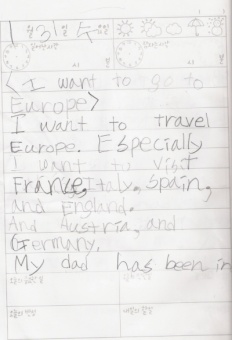 <I want to go to
Europe>
I want to travel
Europe. Especially
I want to visit
France, Italy, Spain,
and England.
And Austria, and
Germany.
My dad has been in